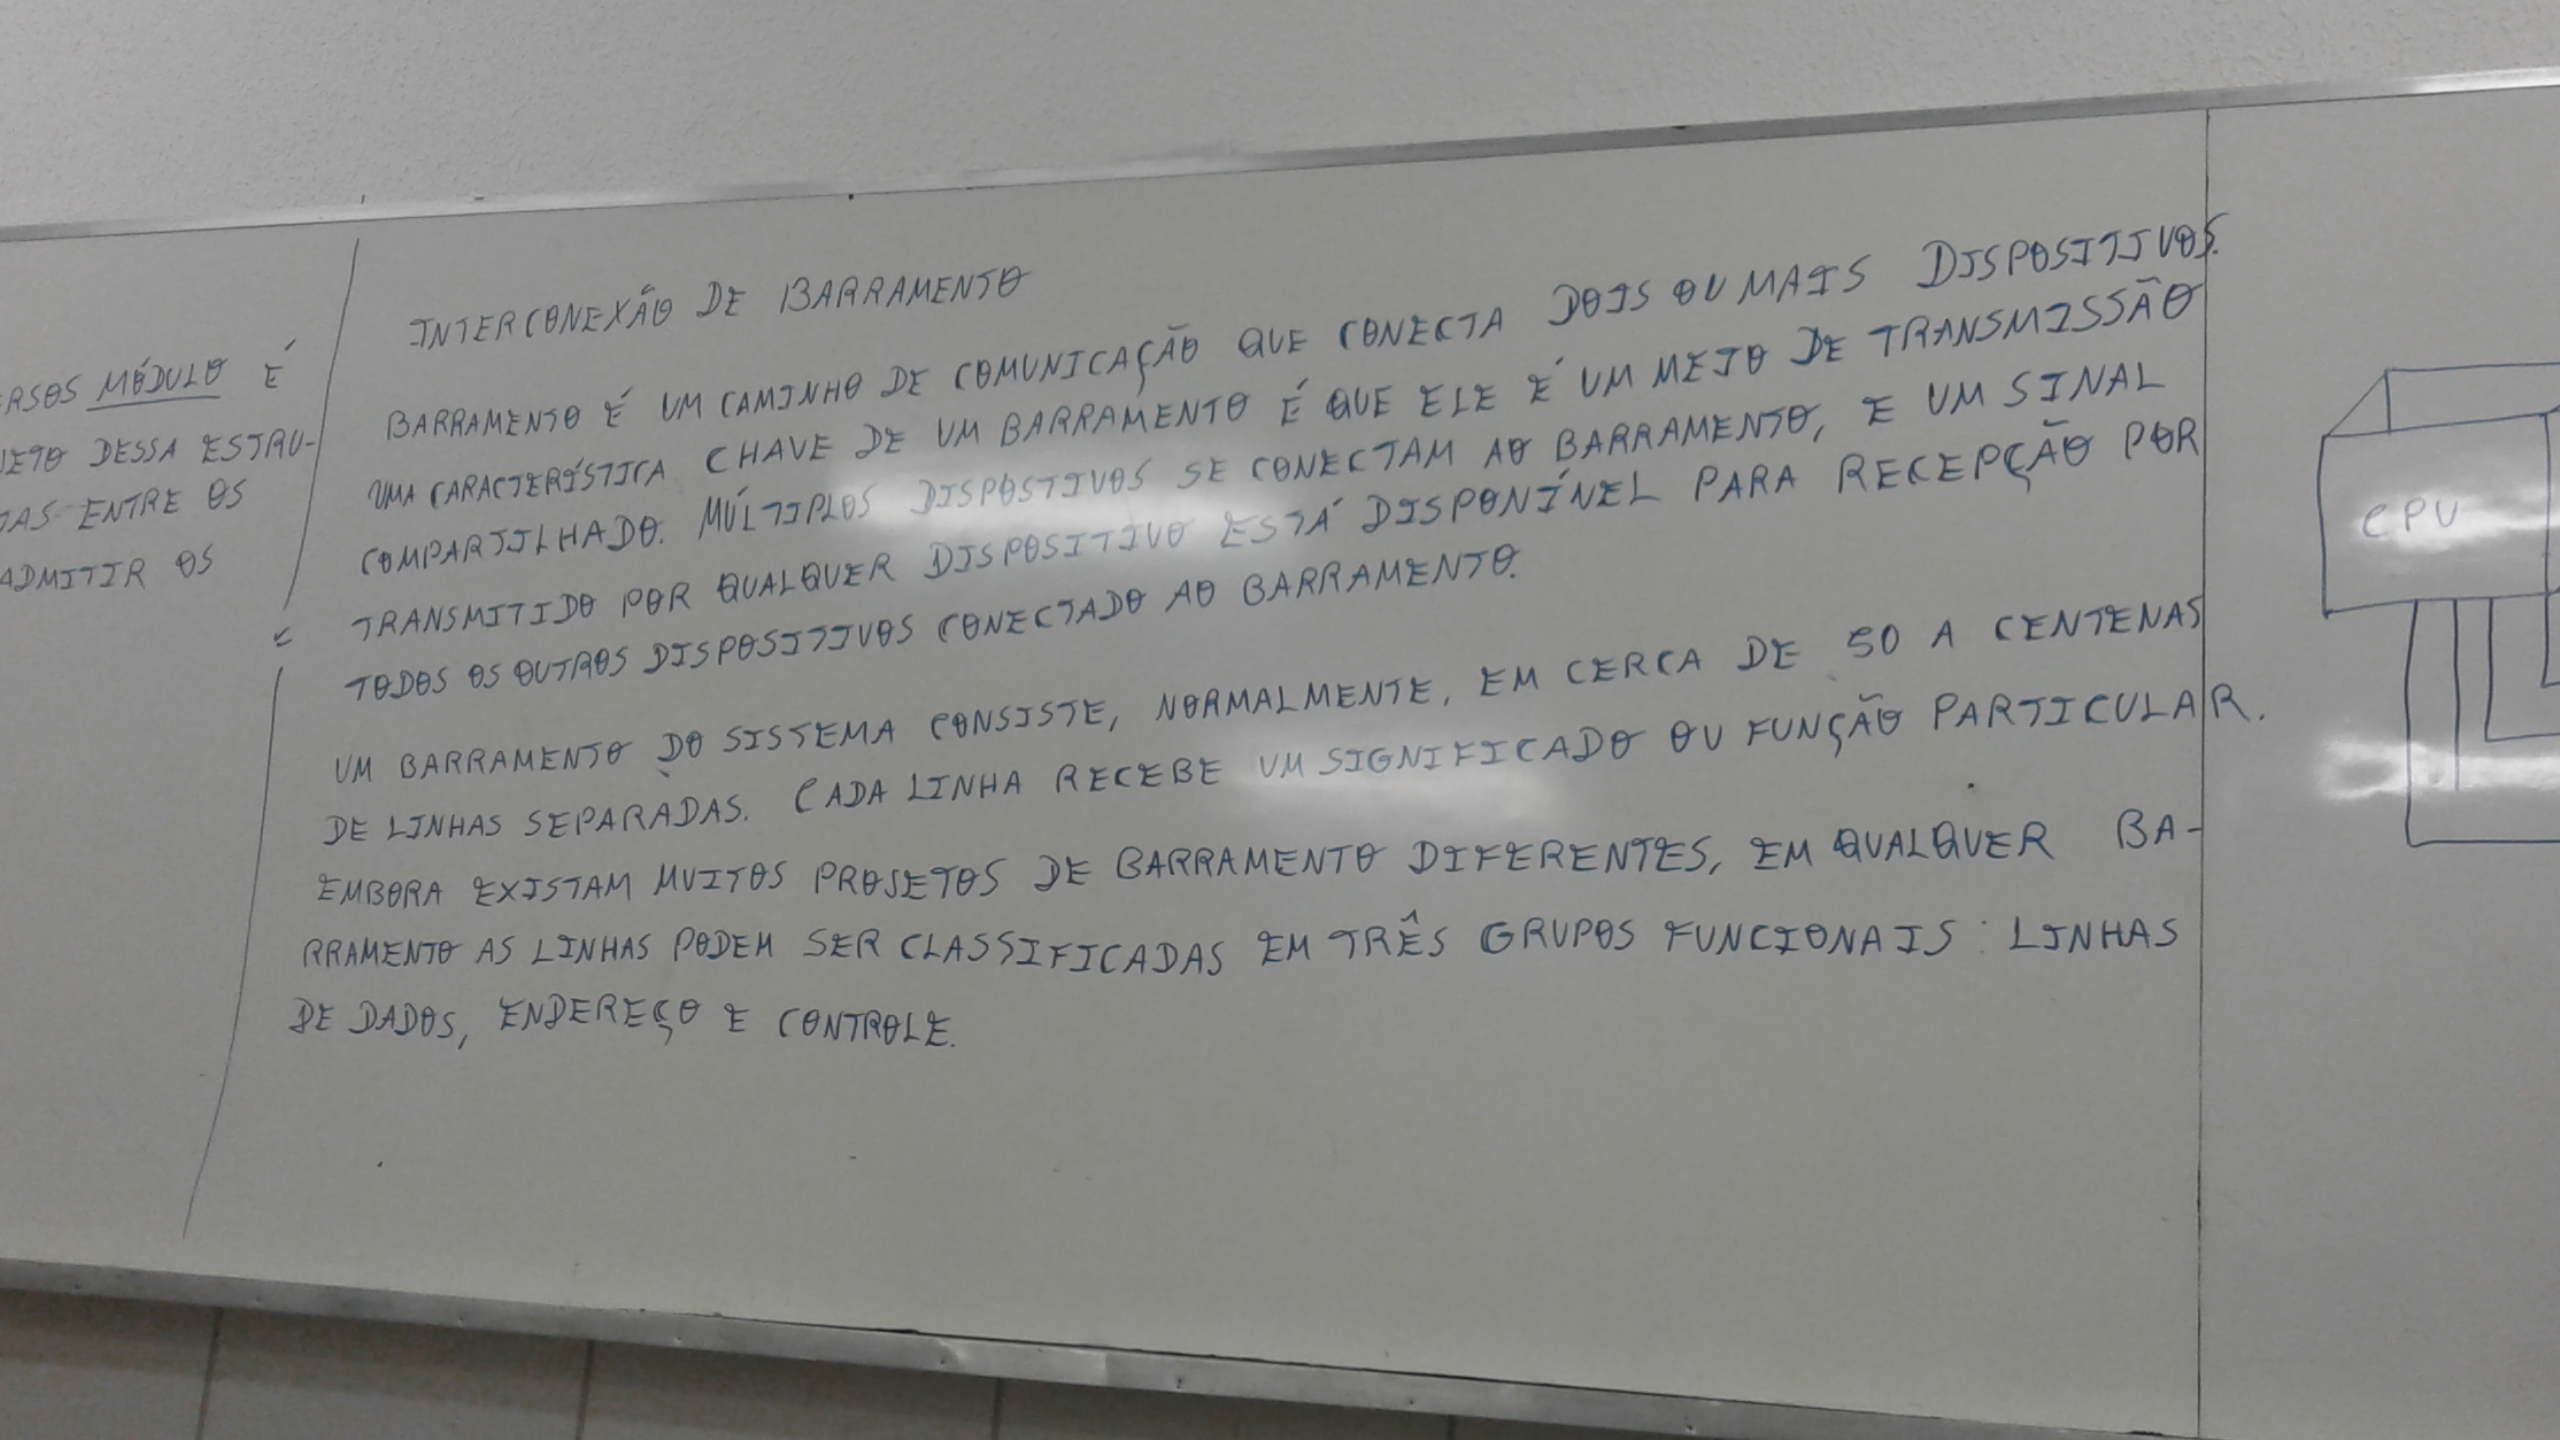 ERSOS MÓDULO É
JETO DESSA ESTRU-
TAS ENTRE OS
ADMITIR OS
INTERCONEXÃO DE BARRAMENTO
BARRAMENTO É UM CAMINHO DE COMUNICAÇÃO QUE CONECTA DOIS OU MAIS DISPOSITIVOS.
UMA CARACTERÍSTICA CHAVE DE UM BARRAMENTO É QUE ELE É UM MEIO DE TRANSMISSÃO
COMPARTILHADO. MÚLTIPLOS DISPOSTIVOS SE CONECTAM AO BARRAMENTO, E UM SINAL
TRANSMITIDO POR QUALQUER DISPOSITIVO ESTÁ DISPONÍVEL PARA RECEPÇÃO POR
TODOS OS OUTROS DISPOSITIVOS CONECTADO AO BARRAMENTO.
UM BARRAMENTO DO SISTEMA CONSISTE, NORMALMENTE, EM CERCA DE 50 A CENTENAS
DE LINHAS SEPARADAS. CADA LINHA RECEBE UM SIGNIFICADO OU FUNÇÃO PARTICULAR.
EMBORA EXISTAM MUITOS PROJETOS DE BARRAMENTO DIFERENTES, EM QUALQUER BA-
RRAMENTO AS LINHAS PODEM SER CLASSIFICADAS EM TRÊS GRUPOS FUNCIONAIS: LINHAS
DE DADOS, ENDEREÇO E CONTROLE.
CPU